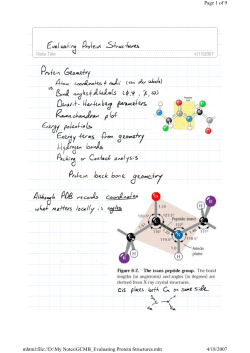 Page 1 of 9
Evaluating Protein Structures
Note Title
4/10/2007
Protein Geometry
Atom coordinates & radii (van der Waals)
vs Bond angles & dihedrals (φ, ψ, χ, ω)
Denavit-Hartenberg parameters
Ramachandran plot
Energy potentials
Energy terms from geometry
Hydrogen bonds
Packing or Contact analysis
Protein back bone geometry
Although PDB records coordinates
what matters locally is angles
Peptide bond
Amide plane
Figure 6-2. The trans peptide group. The bond
lengths (in angstroms) and angles (in degrees) are
derived from X-ray crystal structures.
cis places both Cα on same side.
mhtml:file://D:\My Notes\GCMB_Evaluating Protein Structures.mht
4/10/2007